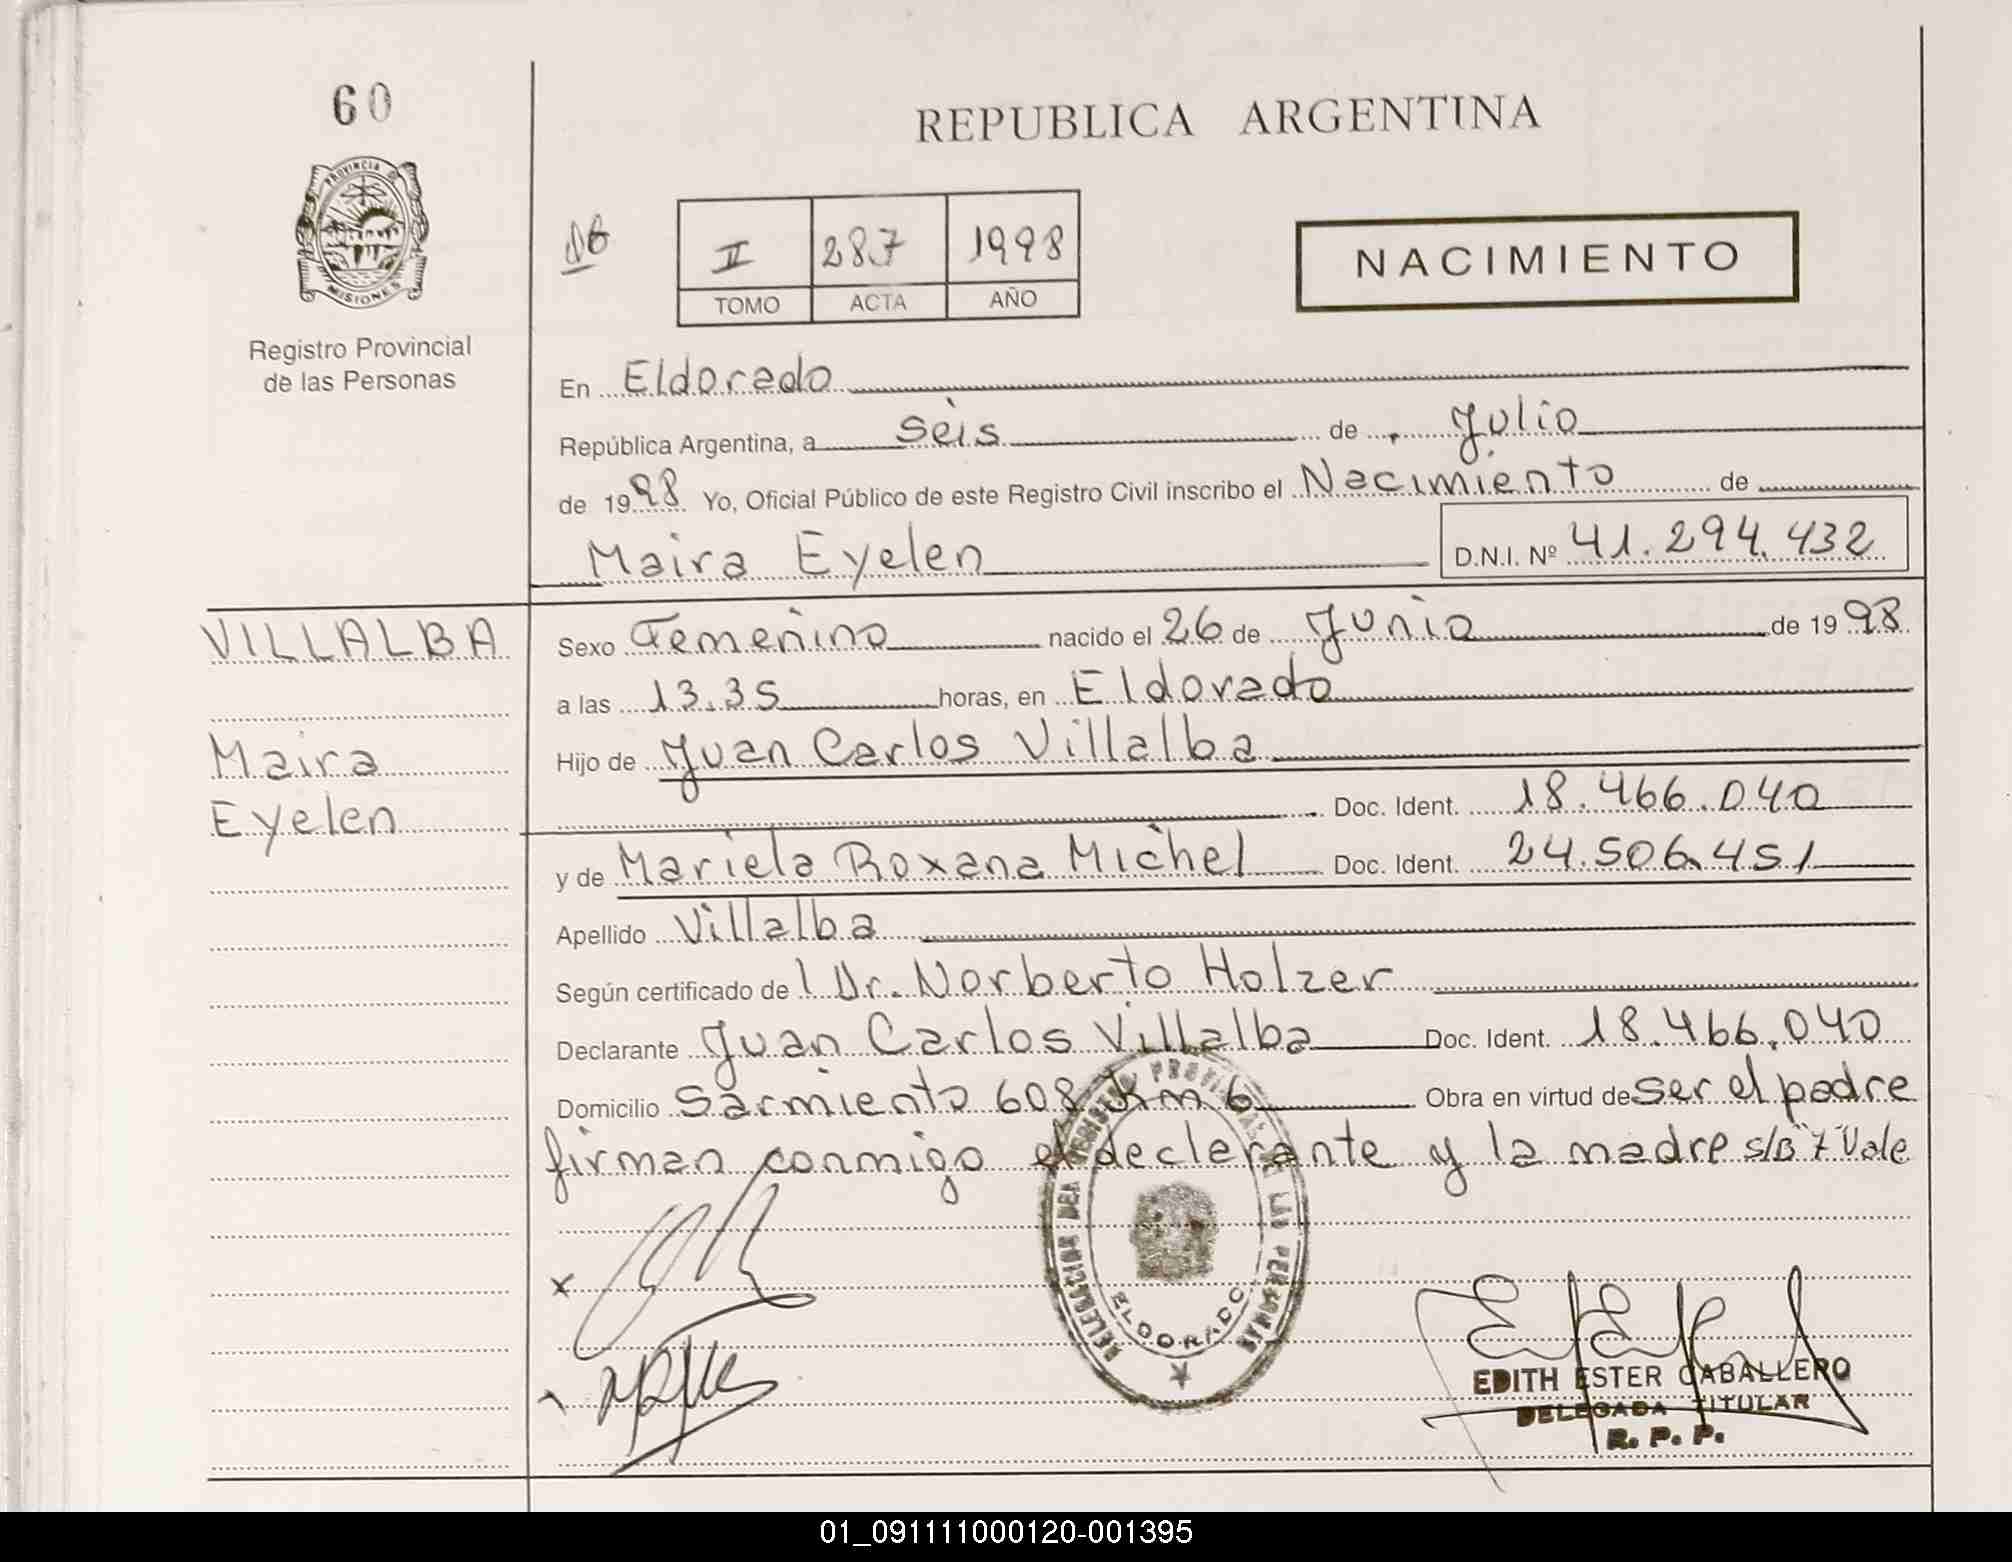 60
PROVINCIA D
MISIONES
Registro Provincial
de las Personas
REPUBLICA ARGENTINA
II 287 1998
TOMO ACTA AÑO
NACIMIENTO
En Eldorado
República Argentina, a seis de Julio
de 1998 Yo, Oficial Público de este Registro Civil inscribo el Nacimiento de
Maira Eyelen D.N.I. Nº 41.294.432
VILLALBA
Maira
Eyelen
Sexo Femenino nacido el 26 de Junio de 1998
a las 13.35 horas, en Eldorado
Hijo de Juan Carlos Villalba
Doc. Ident. 18.466.040
y de Mariela Roxana Michel Doc. Ident. 24.506.451
Apellido Villalba
Según certificado de Dr. Norberto Holzer
Declarante Juan Carlos Villalba Doc. Ident. 18.466.040
Domicilio Sarmiento 608 Km 6 Obra en virtud de ser el padre
firman conmigo el declarante y la madre s/B "7" Vale
ELDORADO
EDITH ESTER CABALLERO
DELEGADA TITULAR
R. P. P.
01_091111000120-001395